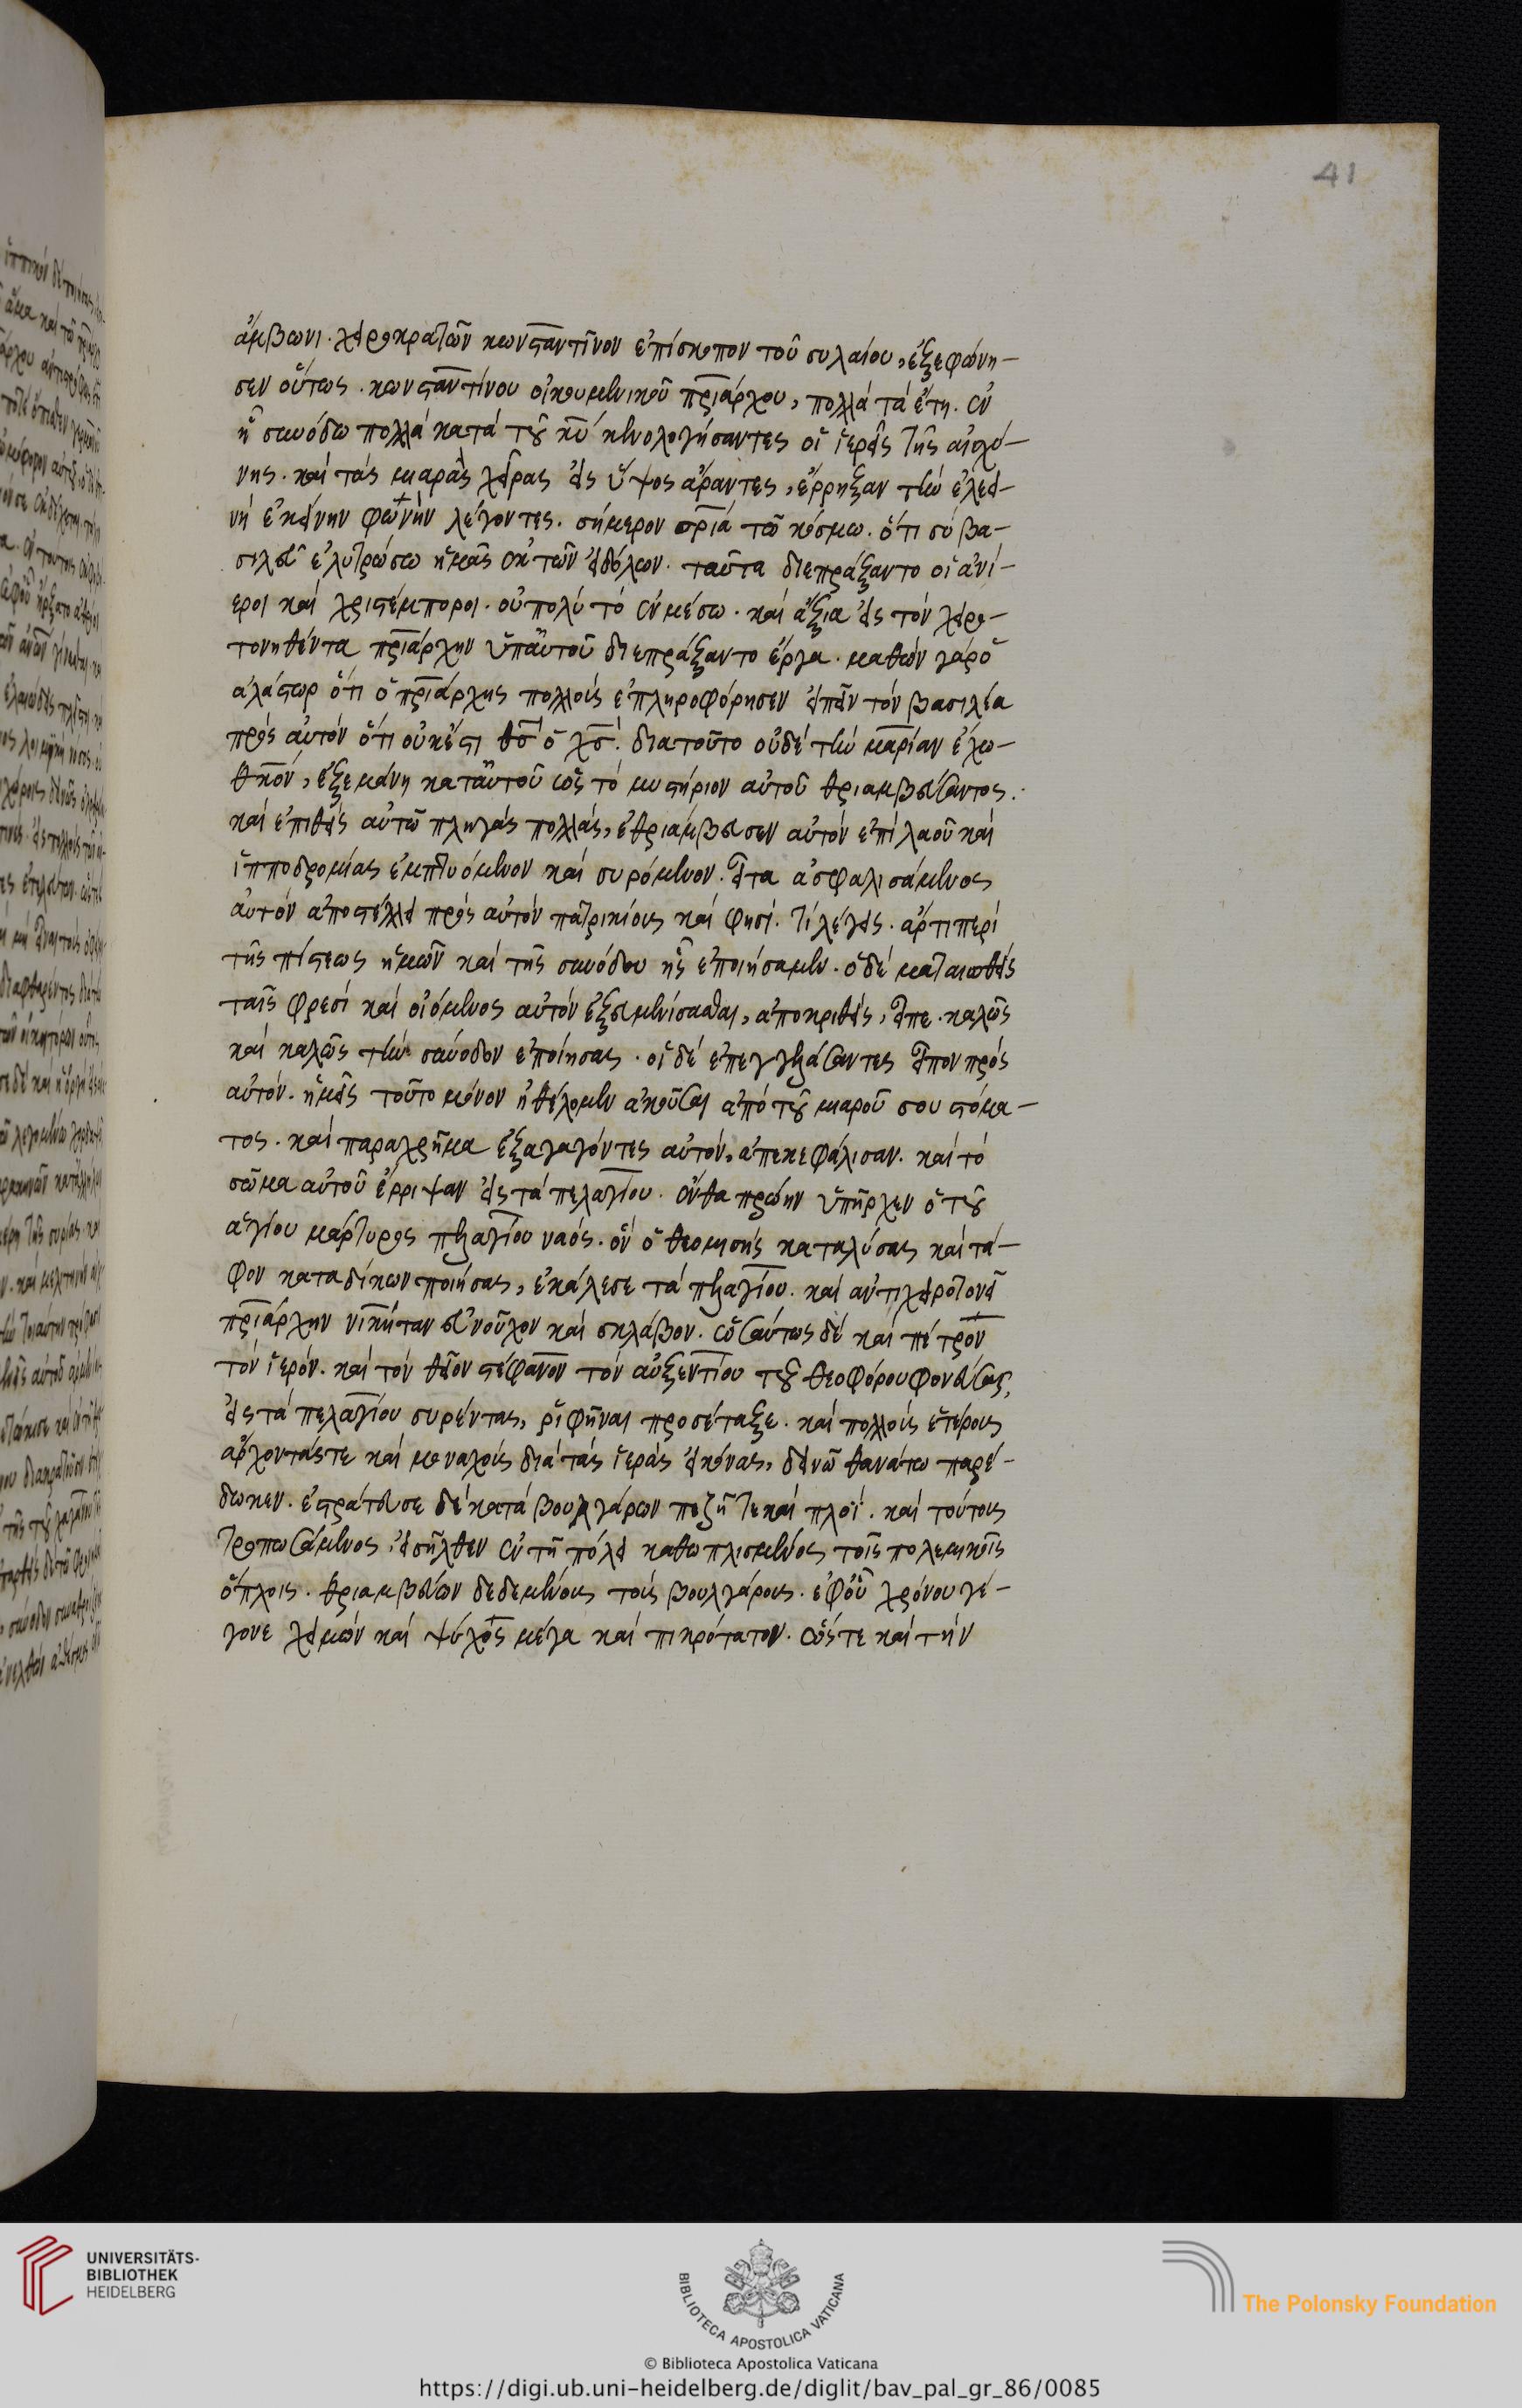 41
ἄμβωνι. χειροκρατῶν κωνσταντῖνον ἐπίσκοπον τοῦ συλαίου, ἐξεφώνη-
σεν οὕτως. κωνσταντίνου οἰκουμενικοῦ πριάρχου, πολλὰ τὰ ἔτη. ἐν
ἧ συνόδω πολλὰ κατὰ τοῦ κυ κενολογήσαντες οἱ ἱερεῖς τῆς αἰσχύ-
νης. καὶ τὰς μιαρὰς χεῖρας εἰς ὕψος ἄραντες, ἔρρηξαν τὴν ἐλεει-
νὴ ἐκείνην φωνὴν λέγοντες. σήμερον σρια τῶ κόσμω. ὅτι σὺ βα-
σιλεῦ ἐλυτρώσω ἡμᾶς ἐκ τῶν εἰδώλων. ταῦτα διεπράξαντο οἱ ἀνί-
εροι καὶ χριστέμποροι. οὐ πολὺ τὸ ἐν μέσω. καὶ ἄξια εἰς τὸν χειρο-
τονηθέντα πριάρχην ὑπαὐτοῦ διεπράξαντο ἔργα. μαθὼν γὰρ ὁ
ἀλάστωρ ὅτι ὁ πριάρχης πολλοὺς ἐπληροφόρησεν εἰπεῖν τὸν βασιλέα
πρὸς αὐτὸν ὅτι οὐκ ἔστι θσ ὁ χσ. διατοῦτο οὐδὲ τὴν μαρίαν ἔχω
θκον, ἐξεμάνη καταὐτοῦ ὡς τὸ μυστήριον αὐτοῦ θριαμβεύσαντος.
καὶ ἐπιθεὶς αὐτῶ πληγὰς πολλάς, ἐθριάμβευσεν αὐτὸν ἐπὶ λαοῦ καὶ
ἱπποδρομίας ἐμπτυόμενον καὶ συρόμενον. εἶτα ἀσφαλισάμενος
αὐτὸν ἀποστέλλει πρὸς αὐτὸν πατρικίους καὶ φησί. τί λέγεις. ἄρτι περὶ
τῆς πίστεως ἡμῶν καὶ τῆς συνόδου ἧς ἐποιήσαμεν. ὁ δὲ ματαιωθεὶς
ταῖς φρεσὶ καὶ οἰόμενος αὐτὸν ἐξευμενίσασθαι, ἀποκριθείς, εἶπε. καλῶς
καὶ καλῶς τὴν σύνοδον ἐποίησας. οἱ δὲ ἐπεγγελάσαντες εἶπον πρὸς
αὐτόν. ἡμεῖς τοῦτο μόνον ἠθέλομεν ἀκοῦσαι ἀπὸ τοῦ μιαροῦ σου στόμα-
τος. καὶ παραχρῆμα ἐξαγαγόντες αὐτόν, ἀπεκεφάλισαν. καὶ τὸ
σῶμα αὐτοῦ ἔρριψαν εἰς τὰ πελαγίου. ἔνθα πρώην ὑπῆρχεν ὁ τοῦ
ἁγίου μάρτυρος πελαγίου ναός. ὃν ὁ θεομισὴς καταλύσας καὶ τά-
φον καταδίκων ποιήσας, ἐκάλεσε τὰ πελαγίου. καὶ ἀντιχειροτονεῖ
πριάρχην νικήταν εὐνοῦχον καὶ σκλάβον. ὡσαύτως δὲ καὶ πέτρον
τὸν ἱερόν. καὶ τὸν θεῖον στέφανον τὸν αὐξεντίου τοῦ θεοφόρου φονεύσας,
εἰς τὰ πελαγίου συρέντας, ῥιφῆναι προσέταξε. καὶ πολλοὺς ἑτέρους
ἄρχοντάς τε καὶ μοναχοὺς διὰ τὰς ἱερὰς εἰκόνας, δεινῶ θανάτω παρέ-
δωκεν. ἐστράτευσε δὲ κατὰ βουλγάρων πεζῆ τε καὶ πλοΐ. καὶ τούτους
τροπωσάμενος, εἰσῆλθεν ἐν τῆ πόλει καθωπλισμένος τοῖς πολεμικοῖς
ὅπλοις. θριαμβεύων δεδεμένους τοὺς βουλγάρους. ἐφ’ οὗ χρόνου γέ-
γονε χειμὼν καὶ ψύχος μέγα καὶ πικρότατον. ὥστε καὶ τὴν
UNIVERSITÄTS-
BIBLIOTHEK
HEIDELBERG
BIBLIOTECA APOSTOLICA VATICANA
The Polonsky Foundation
© Biblioteca Apostolica Vaticana
https://digi.ub.uni-heidelberg.de/diglit/bav_pal_gr_86/0085